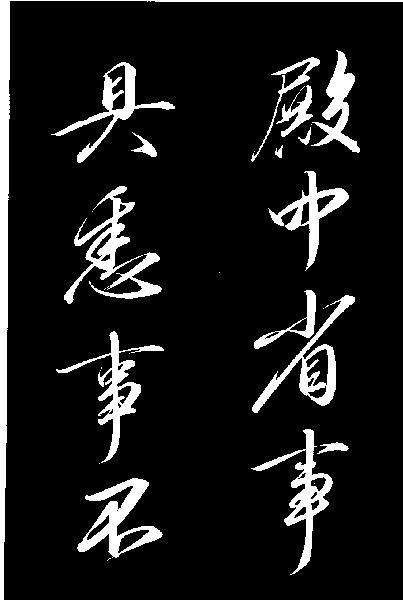 殿中省事
具悉事不